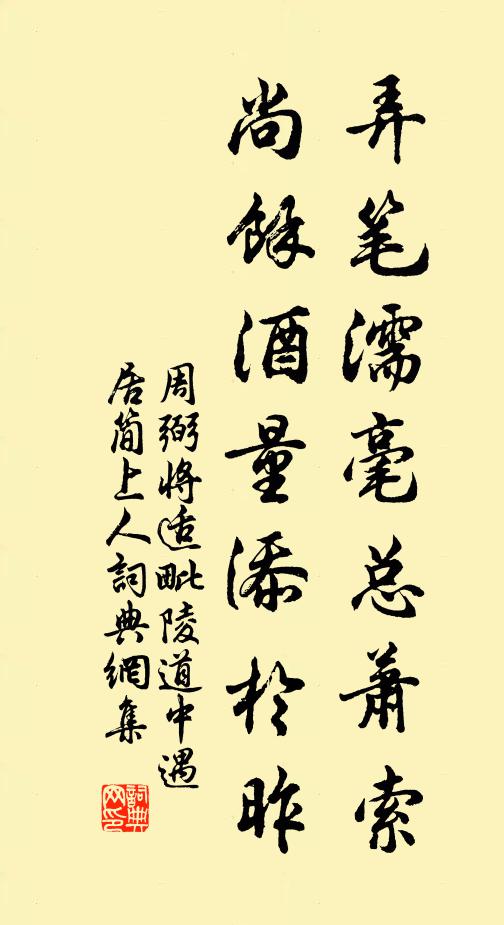 弄笔濡毫总萧索
尚馀酒量添於昨
周弼将适毗陵道中遇
居简上人詞典網集
詞典网印